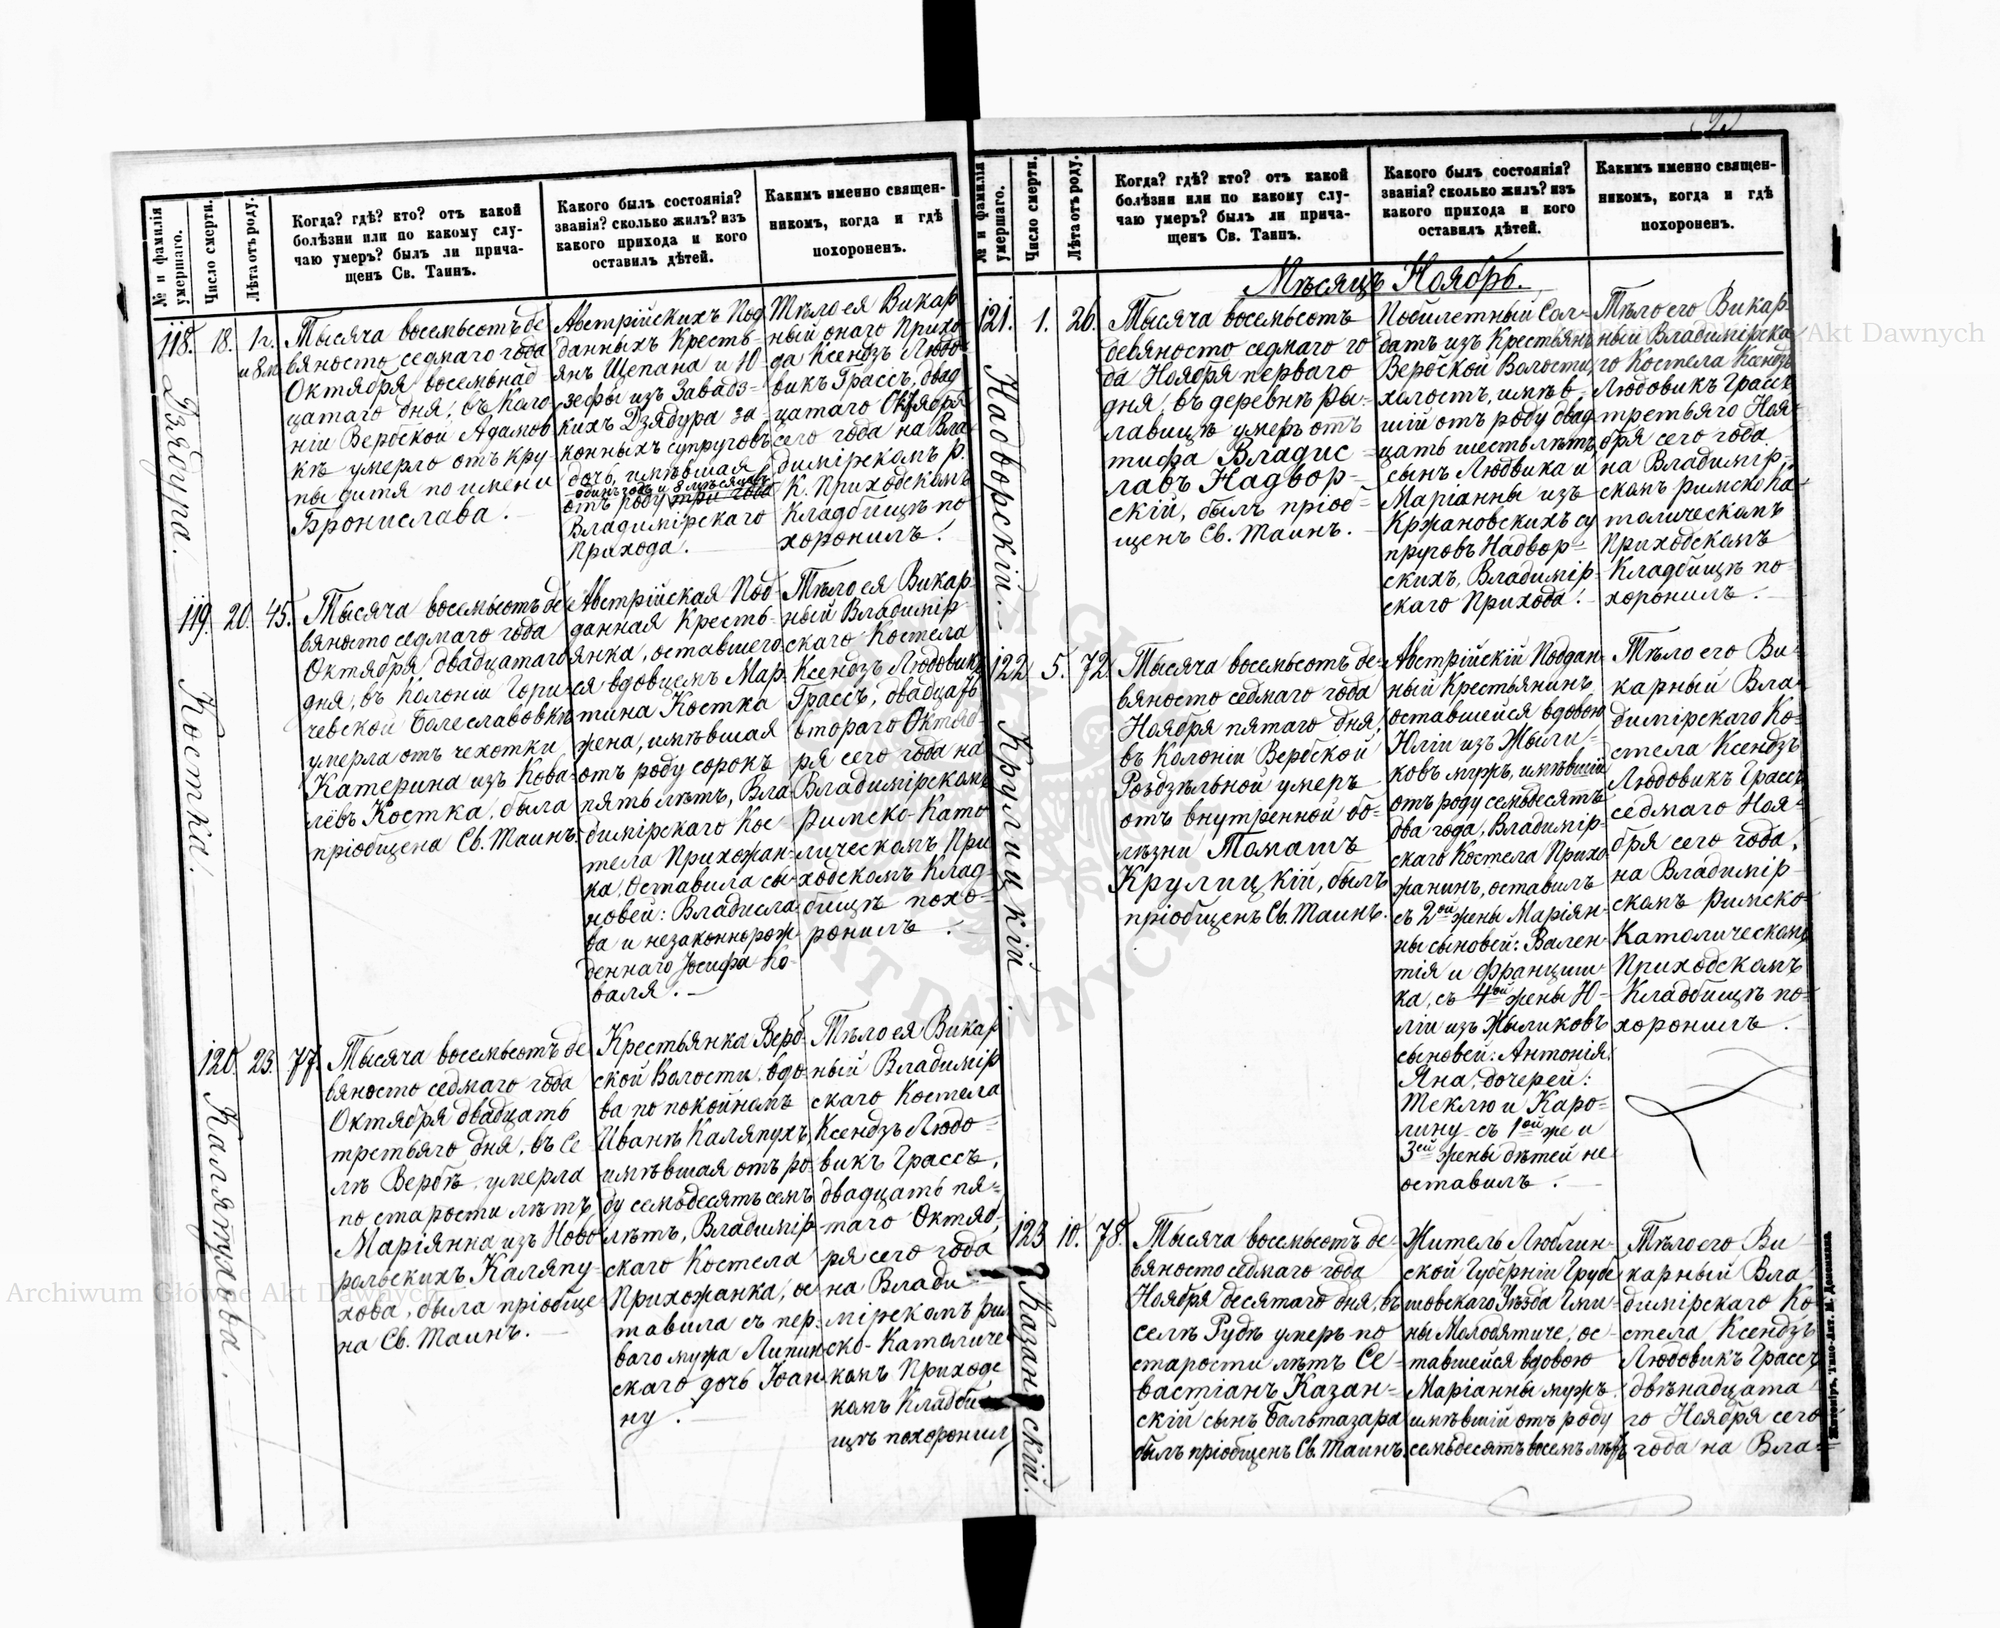 № и фамилія умершаго.
Число смерти.
Лѣта отъ роду.
Когда? гдѣ? кто? отъ какой
болѣзни или по какому слу-
чаю умеръ? былъ ли прича-
щенъ Св. Таинъ.
Какого былъ состоянія?
званія? сколько жилъ? изъ
какого прихода и кого
оставилъ дѣтей.
Какимъ именно священ-
никомъ, когда и гдѣ
похороненъ.
118.
Дзядура.
18.
1 г.
и 8 м.
Тысяча восемьсотъ де
вяносто седмаго года
Октября восемьнад
цатаго дня, въ Коло
ніи Вербской Адамов
кѣ умерло отъ кру-
пы дитя по имени
Бронислава.
Австрійскихъ Под
данныхъ Кресть-
янъ Щепана и Ю-
зефы изъ Завадз-
кихъ Дзядура за-
конныхъ супруговъ
дочь, имѣвшая
одинъ годъ и 8 мѣсяцевъ
отъ роду три года
Владимірскаго
Прихода.
Тѣло ея Викар
ный онаго Прихо
да Ксендзъ Людо-
викъ Грассъ, двад
цатаго Октября
сего года на Вла
димірскомъ р.
К. Приходскомъ
Кладбищѣ по
хоронилъ.
119.
Косткa.
20.
45.
Тысяча восемьсотъ де
вяносто седмаго года
Октября двадцатаго
дня, въ Колоніи Гори-
чевской Болеславовкѣ
умерла отъ чехотки
Катерина изъ Кова-
лёвъ Костка, была
пріобщена Св. Таинъ.
Австрійская Под
данная Кресть-
янка, оставшего
ся вдовцемъ Мар-
тина Костка
жена, имѣвшая
отъ роду сорокъ
пять лѣтъ, Вла
димірскаго Кос-
тела Прихожан-
ка, оставила сы-
новей: Владисла
ва и незаконнорож
деннаго Іосифа Ко-
валя.
Тѣло ея Викар-
ный Владимір-
скаго Костела
Ксендзъ Людовикъ
Грассъ, двадцать
втораго Октяб-
ря сего года на
Владимірскомъ
Римско-Като
лическомъ При
ходскомъ Клад-
бищѣ похо-
ронилъ.
120.
Каляпухова.
23.
77.
Тысяча восемьсотъ де
вяносто седмаго года
Октября двадцать
третьяго дня, въ Се
лѣ Вербѣ, умерла
по старости лѣтъ
Маріянна изъ Ново
рольскихъ Каляпу-
хова, была пріобще
на Св. Таинъ.
Крестьянка Верб
ской Волости, вдо
ва по покойномъ
Иванѣ Каляпухъ,
имѣвшая отъ ро
ду семьдесять семь
лѣтъ, Владимір
скаго Костела
Прихожанка, ос
тавила съ пер-
ваго мужа Липин
скаго дочь Іоан
ну.
Тѣло ея Викар
ный Владимір
скаго Костела
Ксендзъ Людо-
викъ Грассъ,
двадцать пя-
таго Октяб-
ря сего года
на Влади
мірскомъ рим
ско-Католиче
комъ Приходс
комъ Кладби
щѣ похоронил
№ и фамилія умершаго.
Число смерти.
Лѣта отъ роду.
Когда? гдѣ? кто? отъ какой
болѣзни или по какому слу-
чаю умеръ? былъ ли прича-
щенъ Св. Таинъ.
Какого былъ состоянія?
званія? сколько жилъ? изъ
какого прихода и кого
оставилъ дѣтей.
Какимъ именно священ-
никомъ, когда и гдѣ
похороненъ.
Мѣсяцъ Ноябрь.
121.
Надворскій.
1.
26.
Тысяча восемьсотъ
девяносто седмаго го
да Ноября перваго
дня, въ деревнѣ Ры-
лавицѣ умеръ отъ
тифа Владис-
лавъ Надвор-
скій, былъ пріоб-
щенъ Св. Таинъ.
Побилетный Сол-
датъ изъ Крестьянъ
Вербской Волости,
холостъ, имѣв-
шій отъ роду двад
цать шесть лѣтъ,
сынъ Людвика и
Маріанны изъ
Кржановскихъ су
пруговъ Надвор-
скихъ, Владимір-
скаго Прихода.
Тѣло его Викар-
ный Владимірска
го Костела Ксендзъ
Людовикъ Грассъ
третьяго Ноя-
бря сего года
на Владимір-
скомъ римско ка-
толическомъ
Приходскомъ
Кладбищѣ по-
хоронилъ.
122.
Крулицкій.
5.
72.
Тысяча восемьсотъ де-
вяносто седмаго года
Ноября пятаго дня,
въ Колоніи Вербской
Роздзѣльной умеръ
отъ внутренной бо-
лѣзни Томашъ
Крулицкій, былъ
пріобщенъ Св. Таинъ.
Австрійскій Поддан-
ный Крестьянинъ,
оставшейся вдовою
Юліи изъ Жыли-
ковъ мужъ, имѣвшій
отъ роду семьдесятъ
два года, Владимір-
скаго Костела Прихо
жанинъ, оставилъ
съ 2ой жены Маріян-
ны сыновей: Вален-
тія и Франциш-
ка, съ 4ой жены Ю-
ліи изъ Жыликовъ
сыновей: Антонія,
Яна, дочерей:
Теклю и Каро-
лину съ 1ой же и
3ей жены дѣтей не
оставилъ.
Тѣло его Ви-
карный Вла-
димірскаго Ко-
стела Ксендзъ
Людовикъ Грассъ
седмаго Ноя-
бря сего года,
на Владимір-
скомъ римско-
Католическомъ
Приходскомъ
Кладбищѣ по-
хоронилъ.
123
Казанскій.
10.
78.
Тысяча восемьсотъ де-
вяносто седмаго года
Ноября десятаго дня, въ
селѣ Рудѣ умеръ по
старости лѣтъ Се-
вастіанъ Казан-
скій сынъ Бальтазара
былъ пріобщенъ Св. Таинъ.
Житель Люблин-
ской Губерніи Грубе
шовскаго Уѣзда Гми-
ны Молодятиче, ос-
тавшейся вдовою
Маріанны мужъ,
имѣвшій отъ роду
семьдесять восемь лѣтъ
Тѣло его Ви
карный Вла
димірскаго Ко
стела Ксендзъ
Людовикъ Грассъ
двѣнадцата
го Ноября сего
года на Вла-
Archiwum Główne Akt Dawnych